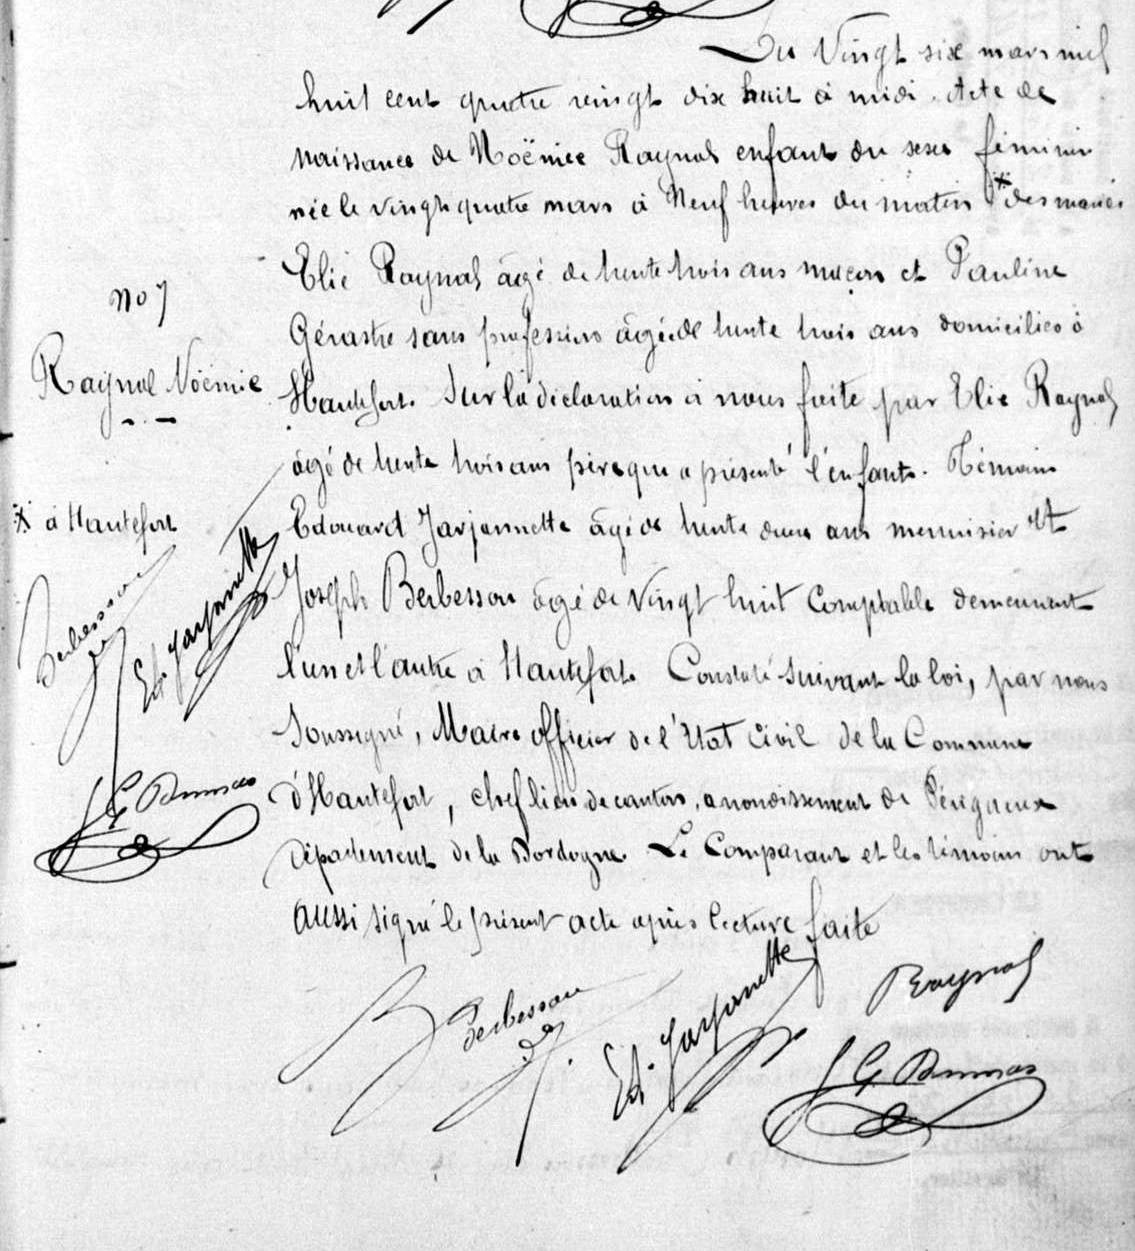 Du Vingt six mars mil
huit cent quatre vingt dix huit à midi. Acte de
naissance de Noëmie Raynal enfant du sexe féminin
née le vingt quatre mars à Neuf heures du matin * des mariés
Elie Raynal âgé de trente trois ans maçon et Pauline
Gérastre sans profession âgée de trente trois ans domiciliés à
Hautefort. Sur la déclaration à nous faite par Elie Raynal
âgé de trente trois ans père que a présenté l'enfant. Témoins
Edouard Jarjannette âgé de trente deux ans menuisier et
Joseph Berbesson âgé de Vingt huit Comptable demeurant
l'un et l'autre à Hautefort. Constaté suivant la loi, par nous
Soussigné, Maire officier de l'Etat Civil de la Commune
d'Hautefort, chef lieu de canton, arrondissement de Périgueux
Département de la Dordogne. Le Comparant et les témoins ont
aussi signé le présent acte après lecture faite
No 7
Raynal Noëmie
* à Hautefort
Berbesson
Ed. Jarjanette
G Dumas
Berbesson
Ed. Jarjanette
Raynal
G Dumas